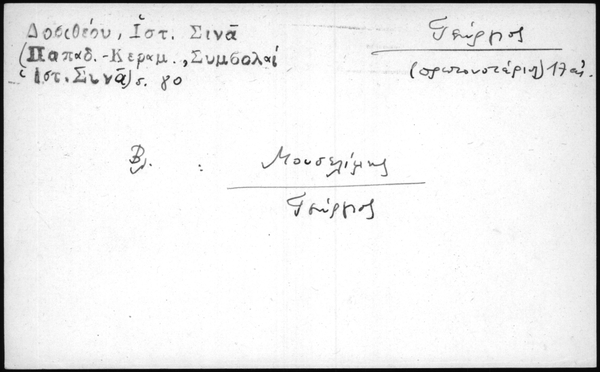 Δοσιθέου, Ἱστ. Σινᾶ
(Παπαδ.-Κεραμ., Συμβολαί
Ἱστ. Σινᾶ) σ. 80
Γεώργιος
(πρωτονοτάριος) 17 αἰ.
Βλ. : Μουσελίμης
Γεώργιος